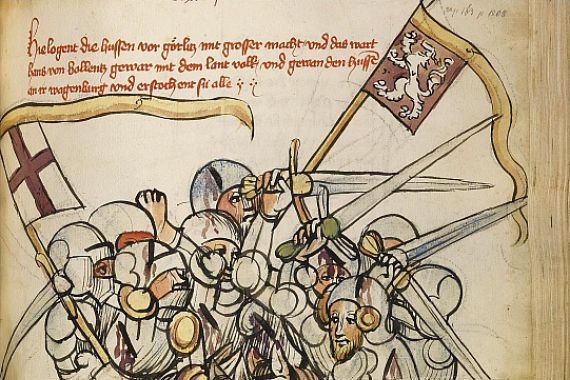 Hie logent die hussen vor görlitz mit grosser macht und das wart
hans von bollentz gewar mit dem lant volk und gewan den husse
an ir wagenburg und erstochent sü alle